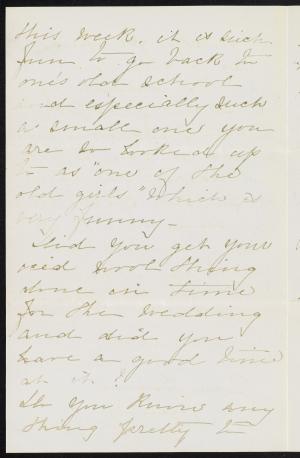 this week. it is such
fun to go back to
one's old school
and especially such
a small one you
are so looked up
to as "one of the
old girls" which is
very funny -
Did you get your
wool thing
done in time
for the wedding
and did you
have a good time
at it?
Do you know any
thing pretty to